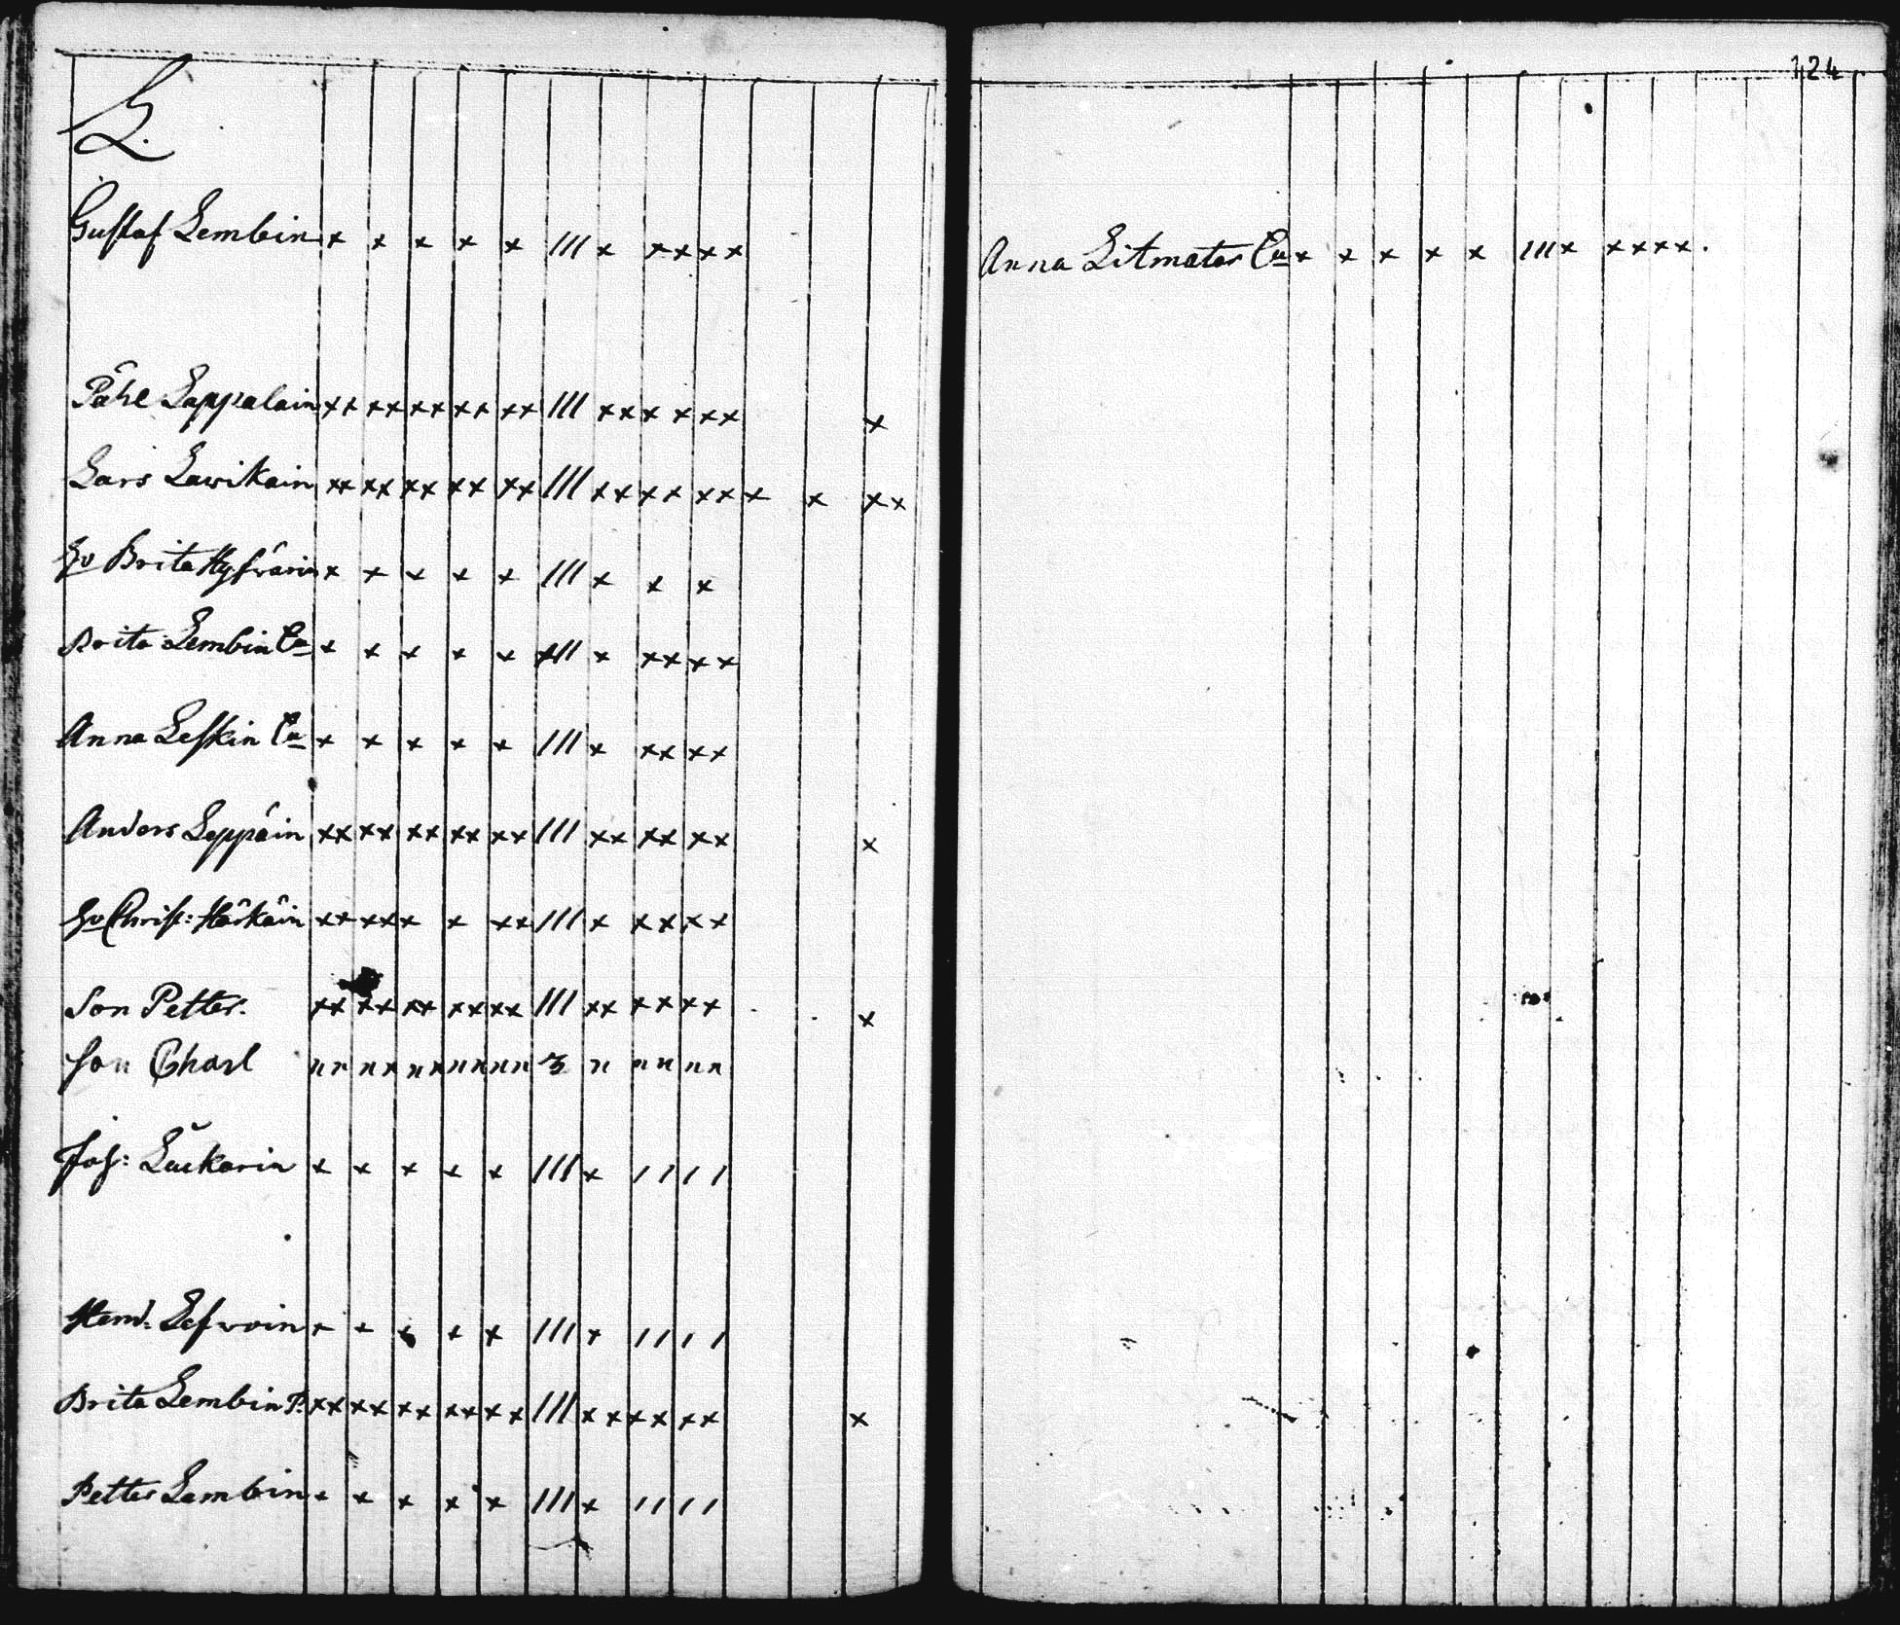 L.
Gustaf Lembin x x x x x /// x x x x x
Påhl Lappalain xx xx xx xx xx /// xx x x xx x
Lars Lawikain xx xx xx xx xx /// xx xx xx x x xx
Brita x x x x x /// x x x
Brita Lembin Ca x x x x x /// x xx xx
Anna Leskin Ca x x x x x /// x xx xx
Anders Leppäin xx xx xx xx xx /// xx xx xx x
Hu Christ: Härkäin xx xx x x xx /// x xx xx
Son Petter. xx xx xx xx xx /// xx xx xx x
Son Charl n n n x n x n n n n 3 n n n n n
Joh: x x x x x /// x / / / /
Hend. x x x x x /// x / / / /
Brita Lembin P. xx xx xx xx xx /// x x x x xx x
Petter Lembin x x x x x /// x / / / /
124
Anna Litmater Ca x x x x x /// x x x x x.